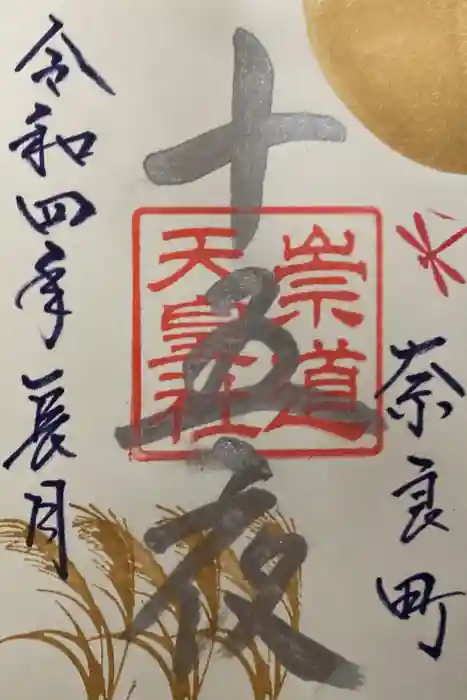 奈良町
十五夜
崇道
天皇社
令和四年長月